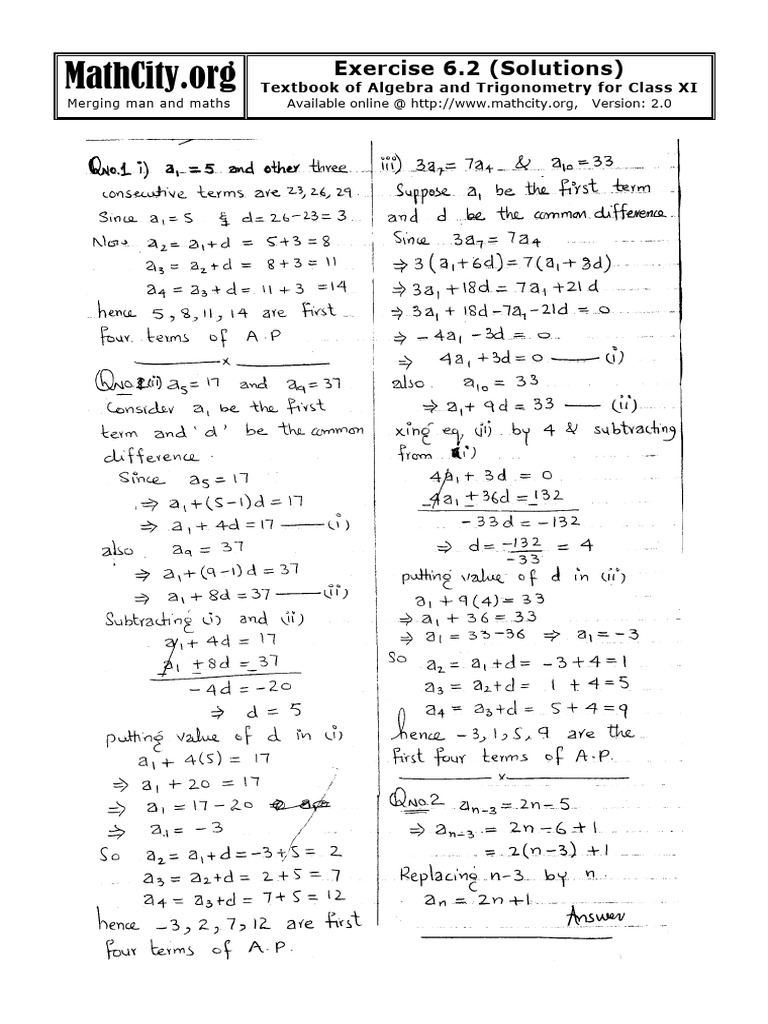 MathCity.org
Merging man and maths
Exercise 6.2 (Solutions)
Textbook of Algebra and Trigonometry for Class XI
Available online @ http://www.mathcity.org, Version: 2.0
QNo.1 i) a₁ = 5 and other three
consecutive terms are 23, 26, 29
Since a₁ = 5 & d = 26-23 = 3
Now a₂ = a₁+d = 5+3 = 8
a₃ = a₂+d = 8+3 = 11
a₄ = a₃+d = 11+3 = 14
hence 5, 8, 11, 14 are first
four terms of A.P
x
QNo.1(ii) a₅ = 17 and a₉ = 37
Consider a₁ be the first
term and 'd' be the common
difference.
Since a₅ = 17
⇒ a₁+(5-1)d = 17
⇒ a₁ + 4d = 17 —— (i)
also a₉ = 37
⇒ a₁+(9-1)d = 37
⇒ a₁ + 8d = 37 —— (ii)
Subtracting (i) and (ii)
a₁ + 4d = 17
_a₁ ± 8d = _37
-4d = -20
⇒ d = 5
putting value of d in (i)
a₁ + 4(5) = 17
⇒ a₁ + 20 = 17
⇒ a₁ = 17-20
⇒ a₁ = -3
So a₂ = a₁+d = -3+5 = 2
a₃ = a₂+d = 2+5 = 7
a₄ = a₃+d = 7+5 = 12
hence -3, 2, 7, 12 are first
four terms of A.P.
iii) 3a₇ = 7a₄ & a₁₀ = 33
Suppose a₁ be the first term
and d be the common difference
Since 3a₇ = 7a₄
⇒ 3(a₁+6d) = 7(a₁+3d)
⇒ 3a₁+18d = 7a₁+21d
⇒ 3a₁ + 18d-7a₁-21d = 0
⇒ -4a₁ -3d = 0
⇒ 4a₁ +3d = 0 —— (i)
also a₁₀ = 33
⇒ a₁+ 9d = 33 —— (ii)
xing eq (ii) by 4 & subtracting
from (i)
4a₁ + 3d = 0
_4a₁ ± 36d = _132
-33d = -132
⇒ d = -132/-33 = 4
putting value of d in (ii)
a₁ + 9(4) = 33
⇒ a₁ + 36 = 33
⇒ a₁ = 33-36 ⇒ a₁ = -3
So a₂ = a₁+d = -3+4 = 1
a₃ = a₂+d = 1+4 = 5
a₄ = a₃+d = 5+4 = 9
hence -3, 1, 5, 9 are the
first four terms of A.P.
x
QNo.2 aₙ₋₃ = 2n-5
⇒ aₙ₋₃ = 2n-6+1
= 2(n-3)+1
Replacing n-3 by n
aₙ = 2n+1
Answer